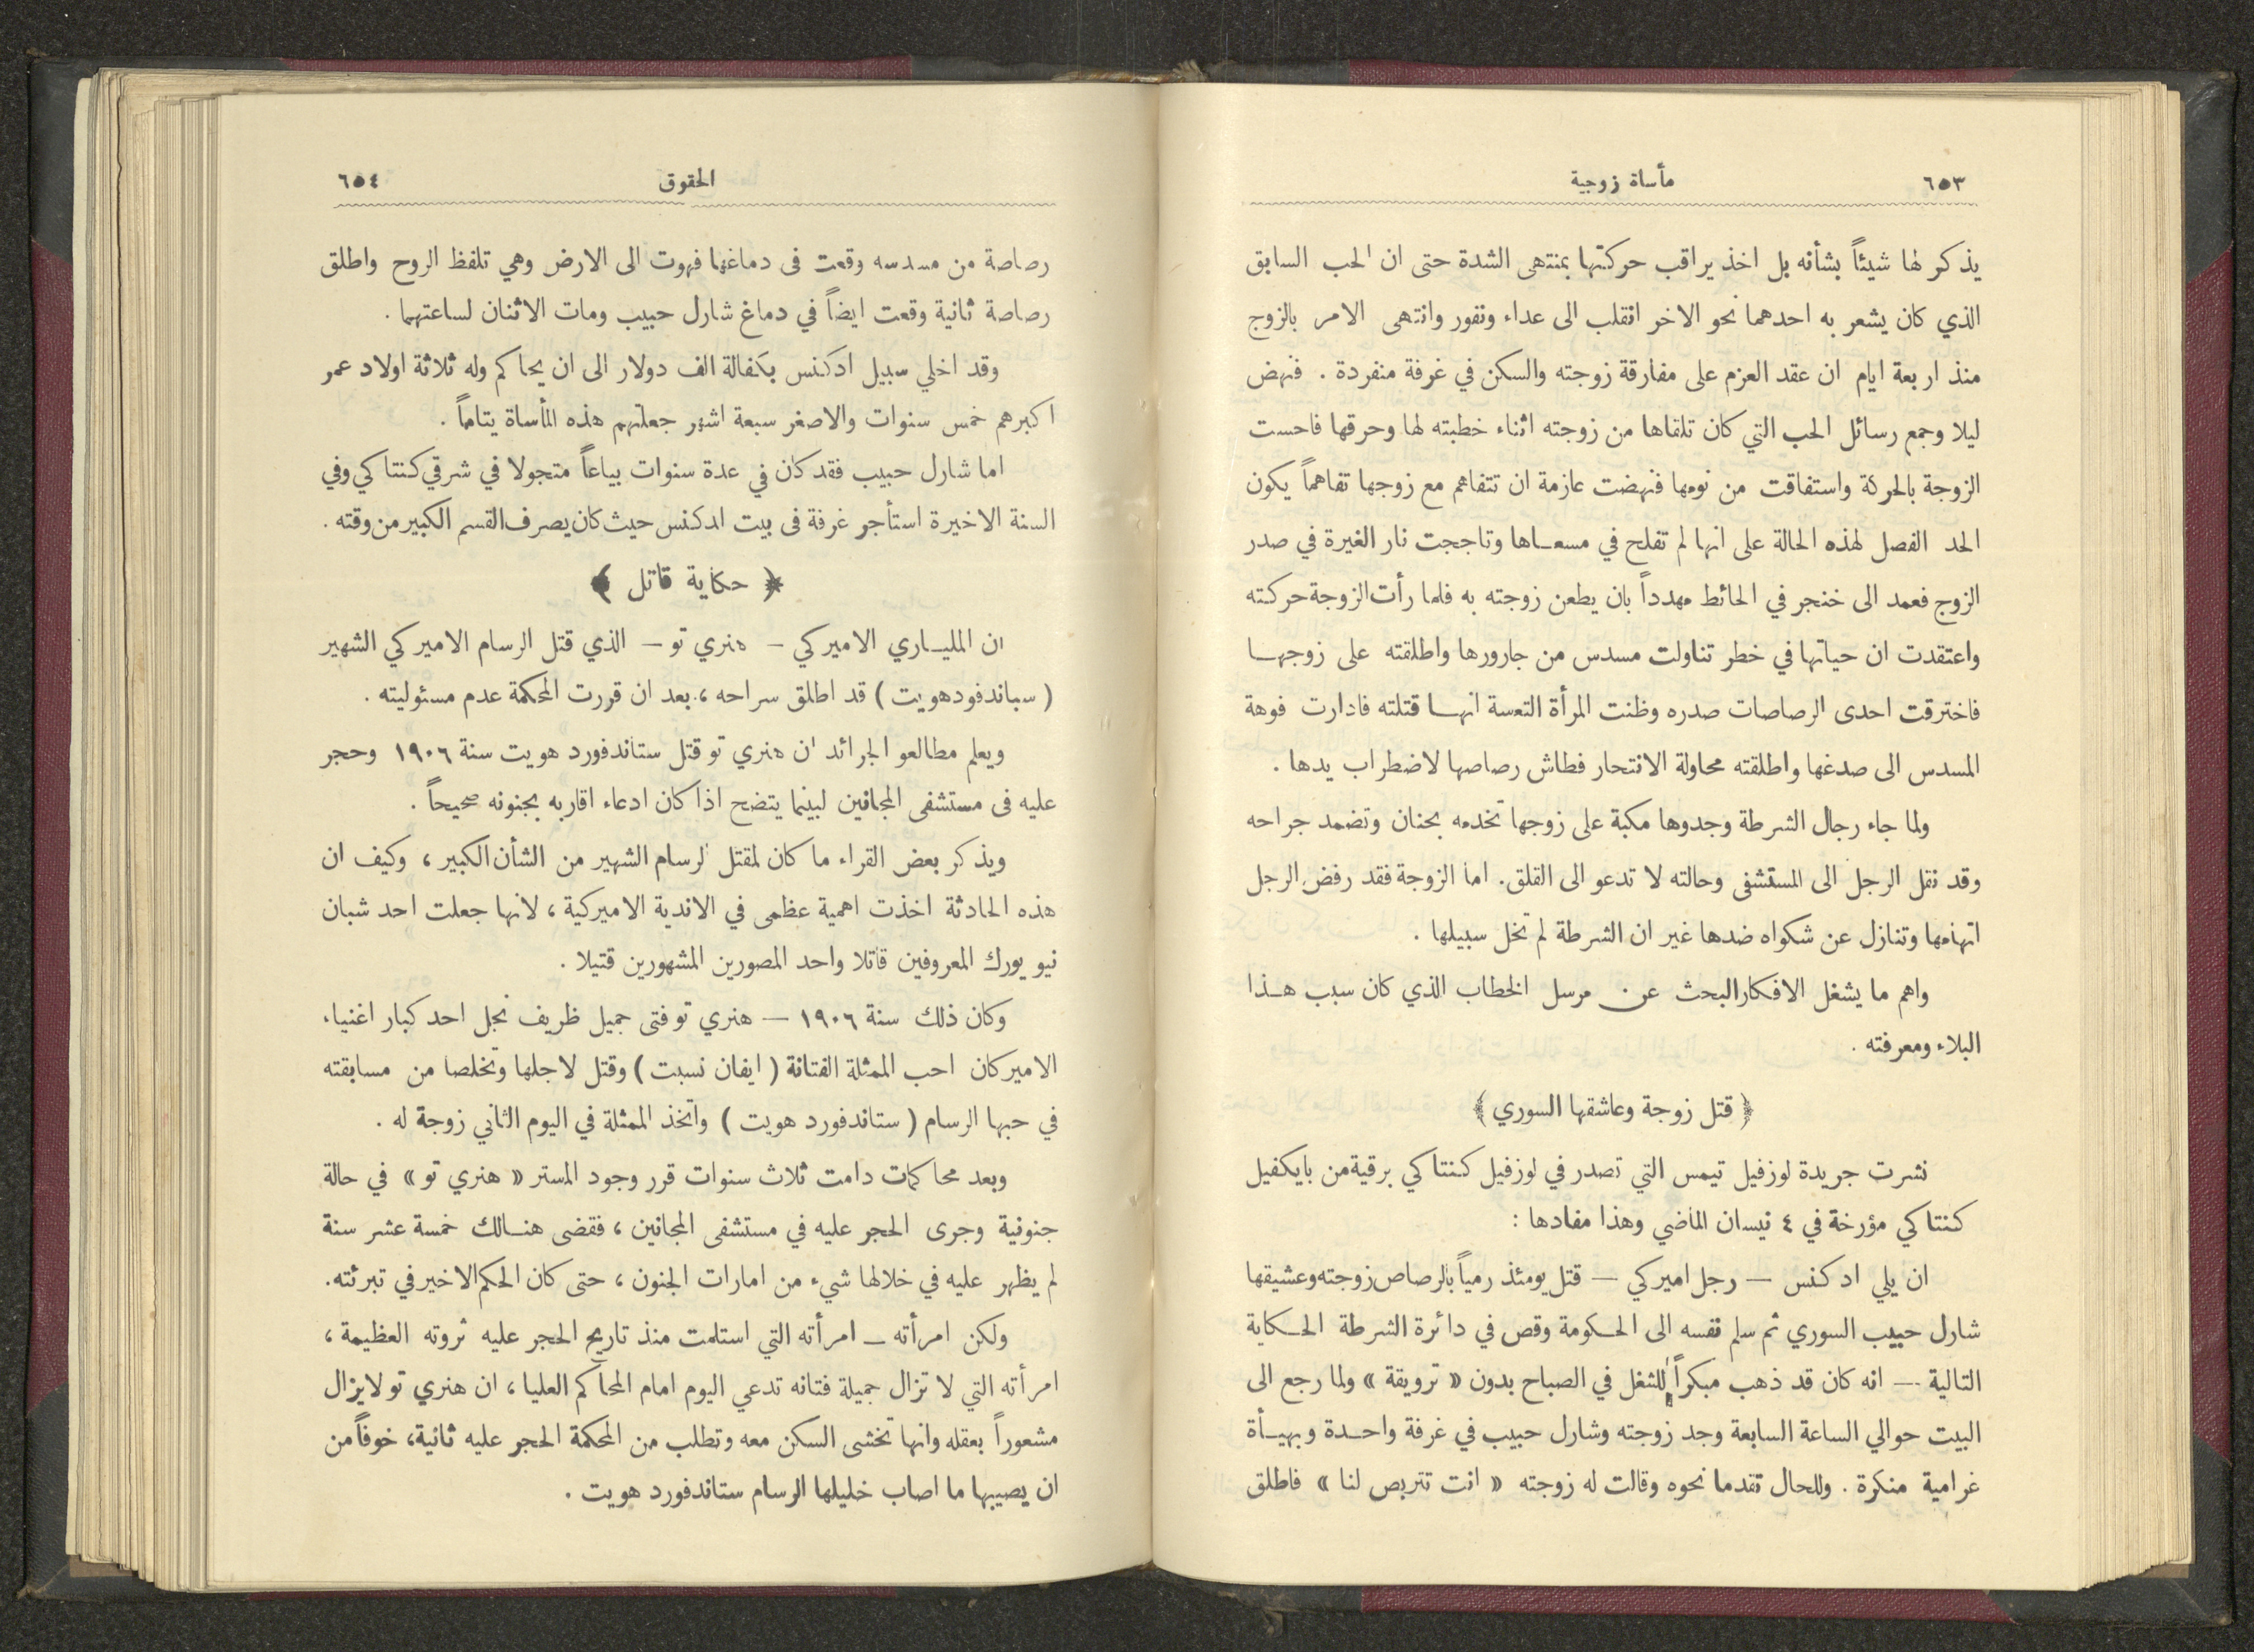 ٦٥٣
مأساة زوجية
يذكر لها شيئاً بشأنه بل اخذ يراقب حركتها بمنتهى الشدة حتى ان الحب السابق
الذي كان يشعر به احدهما نحو الاخر انقلب الى عداء ونفور وانتهى الامر بالزوج
منذ اربعة ايام ان عقد العزم على مفارقة زوجته والسكن في غرفة منفردة . فنهض
ليلا وجمع رسائل الحب التي كان تلقاها من زوجته اثناء خطبته لها وحرقها فاحست
الزوجة بالحركة واستفاقت من نومها فنهضت عازمة ان تتفاهم مع زوجها تفاهماً يكون
الحد الفصل لهذه الحالة على انها لم تفلح في مسعاها وتاججت نار الغيرة في صدر
الزوج فعمد الى خنجر في الحائط مهدداً بان يطعن زوجته به فلما رأت الزوجة حركته
واعتقدت ان حياتها في خطر تناولت مسدس من جارورها واطلقته على زوجها
فاخترقت احدى الرصاصات صدره وظنت المرأة التعسة انها قتلته فادارت فوهة
المسدس الى صدغها واطلقته محاولة الانتحار فطاش رصاصها لاضطراب يدها .
ولما جاء رجال الشرطة وجدوها مكبة على زوجها تخدمه بحنان وتضمد جراحه
وقد نقل الرجل الى المستشفى وحالته لا تدعو الى القلق. اما الزوجة فقد رفض الرجل
اتهامها وتنازل عن شكواه ضدها غير ان الشرطة لم تخل سبيلها .
واهم ما يشغل الافكار البحث عن مرسل الخطاب الذي كان سبب هذا
البلاء ومعرفته .
﴿ قتل زوجة وعاشقها السوري ﴾
نشرت جريدة لوزفيل تيمس التي تصدر في لوزفيل كنتاكي برقية من بايكفيل
كنتاكي مؤرخة في ٤ نيسان الماضي وهذا مفادها :
ان يلي ادكنس — رجل اميركي — قتل يومئذ رمياً بالرصاص زوجته وعشيقها
شارل حبيب السوري ثم سلم نفسه الى الحكومة وقص في دائرة الشرطة الحكاية
التالية — انه كان قد ذهب مبكراً للشغل في الصباح بدون « ترويقة » ولما رجع الى
البيت حوالي الساعة السابعة وجد زوجته وشارل حبيب في غرفة واحدة وبهيأة
غرامية منكرة . وللحال تقدما نحوه وقالت له زوجته « انت تتربص لنا » فاطلق
الحقوق
٦٥٤
رصاصة من مسدسه وقعت فى دماغها فهوت الى الارض وهي تلفظ الروح واطلق
رصاصة ثانية وقعت ايضاً في دماغ شارل حبيب ومات الاثنان لساعتهما .
وقد اخلي سبيل ادكنس بكفالة الف دولار الى ان يحاكم وله ثلاثة اولاد عمر
اكبرهم خمس سنوات والاصغر سبعة اشهر جعلتهم هذه المأساة يتاماً .
اما شارل حبيب فقد كان في عدة سنوات بياعاً متجولا في شرقي كنتاكي وفي
السنة الاخيرة استأجر غرفة فى بيت ادكنس حيث كان يصرف القسم الكبير من وقته .
﴿ حكاية قاتل ﴾
ان المليارى الاميركي — هنري تو — الذي قتل الرسام الاميركي الشهير
( سباندفودهويت ) قد اطلق سراحه ، بعد ان قررت المحكمة عدم مسئوليته .
ويعلم مطالعو الجرائد ان هنري تو قتل ستاندفورد هويت سنة ١٩٠٦ وحجر
عليه فى مستشفى المجانين لبينما يتضح اذا كان ادعاء اقاربه بجنونه صحيحاً .
ويذكر بعض القراء ما كان لمقتل الرسام الشهير من الشأن الكبير ، وكيف ان
هذه الحادثة اخذت اهمية عظمى في الاندية الاميركية ، لانها جعلت احد شبان
نيو يورك المعروفين قاتلا واحد المصورين المشهورين قتيلا .
وكان ذلك سنة ١٩٠٦ — هنري تو فتى جميل ظريف نجل احد كبار اغنياء
الاميركان احب الممثلة الفتانة ( ايفان نسبت ) وقتل لاجلها وتخلصا من مسابقته
في حبها الرسام ( ستاندفورد هويت ) واتخذ الممثلة في اليوم الثاني زوجة له .
وبعد محاكمات دامت ثلاث سنوات قرر وجود المستر « هنري تو » في حالة
جنونية وجرى الحجر عليه في مستشفى المجانين ، فقضى هنالك خمسة عشر سنة
لم يظهر عليه في خلالها شيء من امارات الجنون ، حتى كان الحكم الاخير في تبرئته.
ولكن امرأته — امرأته التي استلمت منذ تاريخ الحجر عليه ثروته العظيمة ،
امرأته التي لا تزال جميلة فتانه تدعي اليوم امام المحاكم العليا ، ان هنري تو لا يزال
مشعوراً بعقله وانها تخشى السكن معه وتطلب من المحكمة الحجر عليه ثانية، خوفاً من
ان يصيبها ما اصاب خليلها الرسام ستاندفورد هويت .